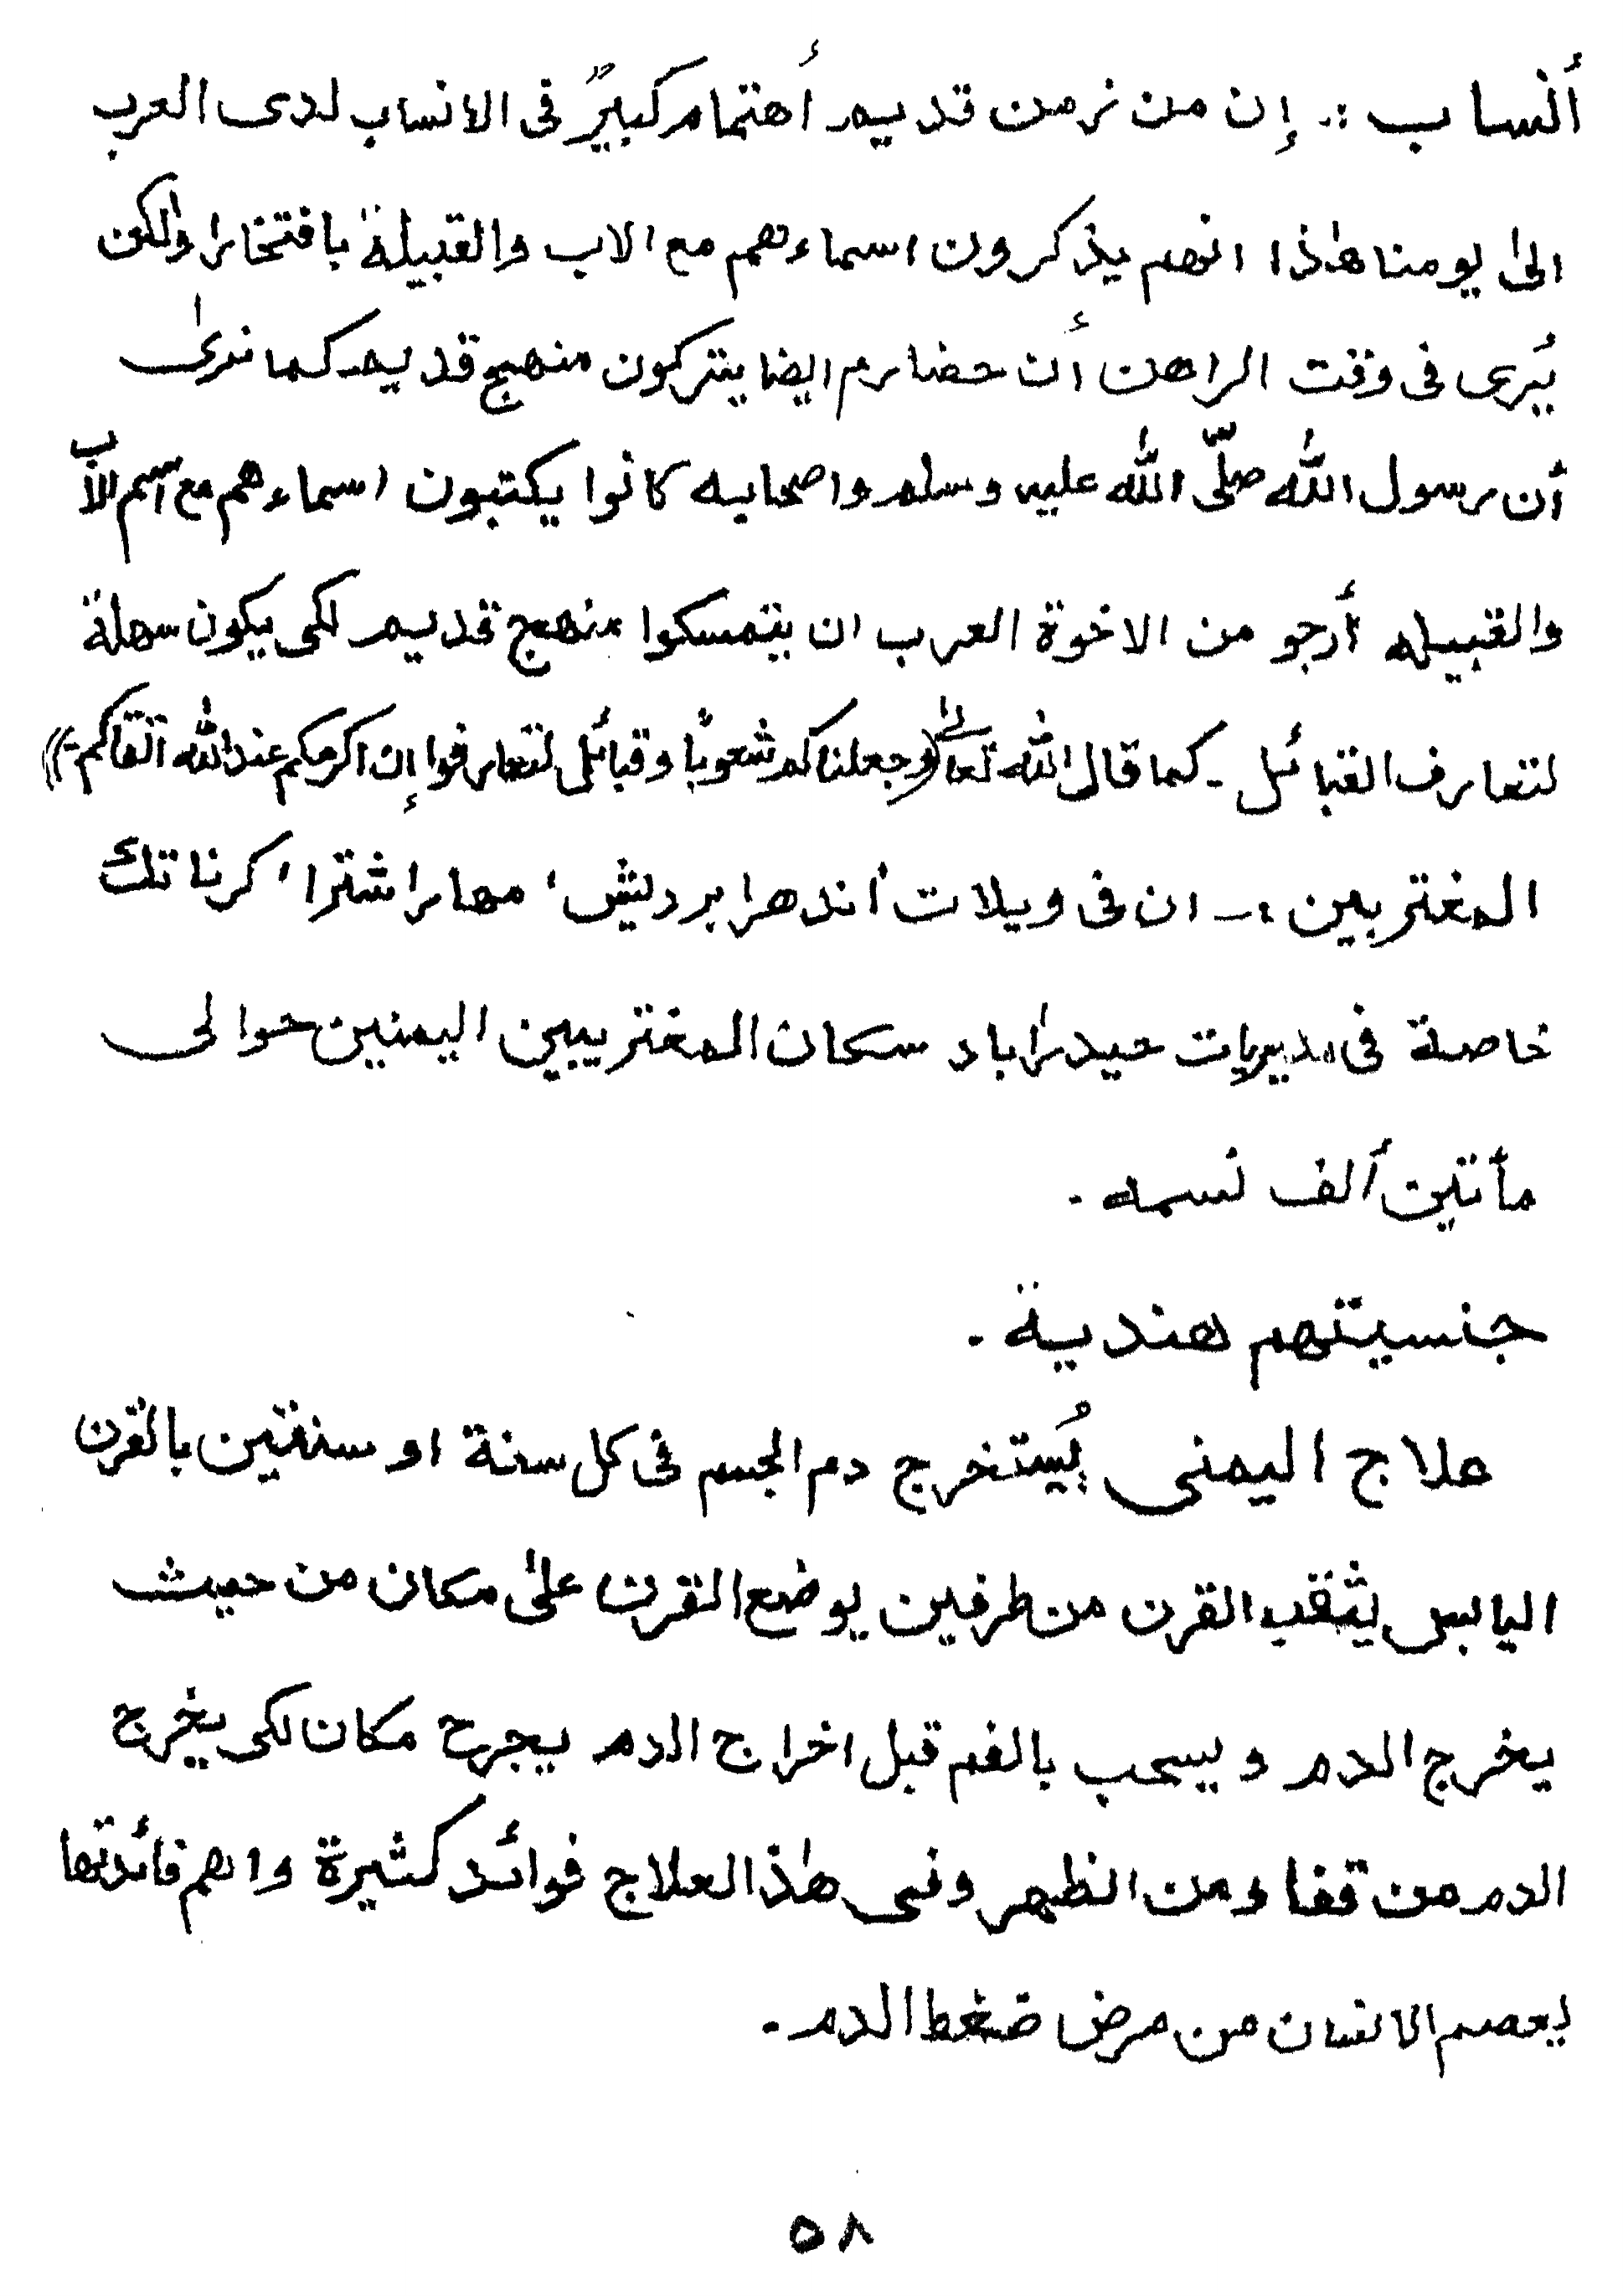 أنساب :۔ إن من زمن قديم أهتمام كبيرٌ فى الانساب لدى العرب
الىٰ يومنا هٰذا انهم يذكرون اسماءهم مع الاب والقبيلة بافتخار ولٰكن
يُرى فى وقت الراهن أن حضارم ايضا يتركون منهج قديم كما نرىٰ
أن رسول اللّٰه صلّى اللّٰه عليه وسلم واصحابه كانوا يكتبون اسماءهم مع اسم الاب
والقبيله أرجو من الاخوة العرب ان يتمسكوا منهج قديم لكى يكون سهلة
لتعارف القبائل ۔ كما قال اللّٰه تعالىٰ ((وجعلناكم شعوبًا وقبائل لتعارفوا إن اكرمكم عند اللّٰه اتقاكم ۔))
المغتربين :۔ ان فى ويلات أندهرا برديش، مهاراشترا، كرناتك
خاصة فى مديريات حيدرٰاباد سكان المغتربيين اليمنين حوالى
مأتين ألف نسمه ۔
جنسيتهم هندية ۔
علاج اليمنى يُستخرج دم الجسم فى كل سنة او سنتين بالقرن
اليابس يثقب القرن من طرفين يوضع القرن علىٰ مكان من حيث
يخرج الدم ويسحب بالفم قبل اخراج الدم يجرح مكان لكى يخرج
الدم من قفا ومن الظهر وفى هٰذا لعلاج فوائد كثيرة واهم فائدتها
يعصم الانسان من مرض ضغط الدم ۔
٥٨